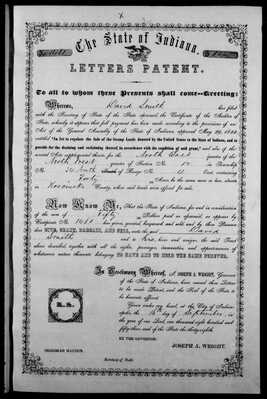 The State of Indiana.
LETTERS PATENT.
To all to whom these Presents shall come--Greeting:
Whereas, David Smith has filed
with the Secretary of State of the State aforesaid the Certificate of the Auditor of
State, whereby it appears that full payment has been made according to the provisions of an
Act of the General Assembly of the State of Indiana, approved May 29, 1852,
entitled "An Act to regulate the Sale of the Swamp Lands donated by the United States to the State of Indiana, and to
provide for the draining and reclaiming thereof, in accordance with the condition of said grant," and also of the
several Acts supplemental thereto, for the North East quarter of the
North West quarter of Section No. in Township
North of Range No. East containing
Forty Acres be the same more or less, situate
in Kosciusko County, where said lands were offered for sale.
Now Know Ye, That the State of Indiana, for and in consideration
of the sum of Fifty Dollars paid as aforesaid, as appears by
Certificate No. the moneys required, bargained and sold, and by these Presents
does GIVE, GRANT, BARGAIN, AND SELL, unto the said David
Smith and to heirs and assigns, the said Tract
above described, together with all the rights, privileges, immunities, and appurtenances of
whatsoever nature thereunto belonging TO HAVE AND TO HOLD THE SAME FOREVER.
In Testimony Whereof, I, JOSEPH A. WRIGHT, Governor
of the State of Indiana, have caused these Letters
to be made Patent, and the Seal of the State to
be hereunto affixed.
Given under my hand, at the City of Indianapolis,
the 16th day of September, in
the year of our Lord, one thousand eight hundred and
fifty and of the State the
BY THE GOVERNOR:
JOSEPH A. WRIGHT.
L. S.
Secretary of State.